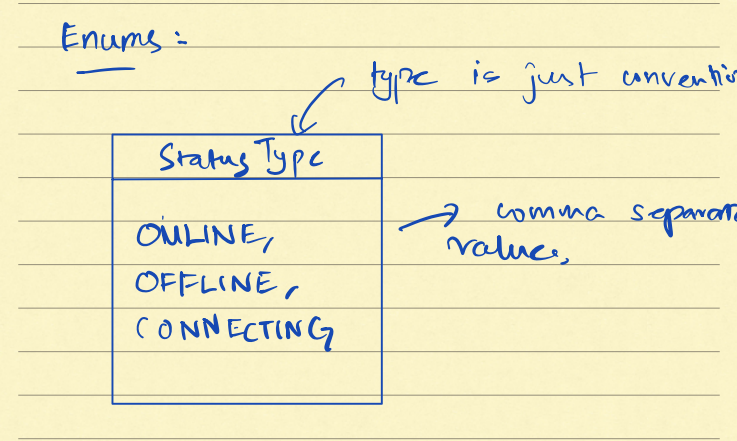 Enums :-
type is just conventio
Status Type
ONLINE,
OFFLINE,
CONNECTING
comma separat
value,